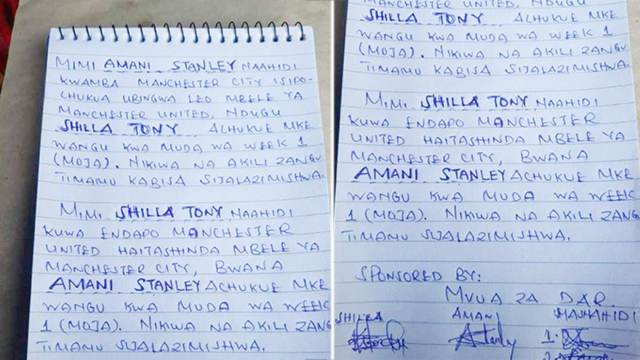 MIMI AMANI STANLEY NAAHIDI
KWAMBA MANCHESTER CITY ISIPO-
CHUKUA UBINGWA LEO MBELE YA
MANCHESTER UNITED, NDUGU
SHILLA TONY ACHUKUE MKE
WANGU KWA MUDA WA WEEK 1
(MOJA). NIKIWA NA AKILI ZANGU
TIMAMU KABISA SIJALAZIMISHWA.
MIMI SHILLA TONY NAAHIDI
KUWA ENDAPO MANCHESTER
UNITED HAITASHINDA MBELE YA
MANCHESTER CITY, BWANA
AMANI STANLEY ACHUKUE MKE
WANGU KWA MUDA WA WEEK
1 (MOJA). NIKIWA NA AKILI ZANG
TIMAMU SIJALAZIMISHWA.
MANCHESTER UNITED, NDUGU
SHILLA TONY ACHUKUE MKE
WANGU KWA MUDA WA WEEK 1
(MOJA). NIKIWA NA AKILI ZANGU
TIMAMU KABISA SIJALAZIMISHWA.
MIMI SHILLA TONY NAAHIDI
KUWA ENDAPO MANCHESTER
UNITED HAITASHINDA MBELE YA
MANCHESTER CITY, BWANA
AMANI STANLEY ACHUKUE MKE
WANGU KWA MUDA WA WEEK
1 (MOJA). NIKIWA NA AKILI ZANG
TIMAMU SIJALAZIMISHWA.
SPONSORED BY:
MVUA ZA DAR.
SHILLA AMANI MASHAHIDI
Astanly 1.
2.